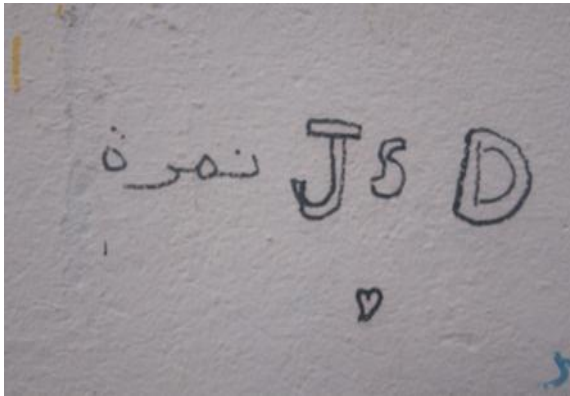 نمرة J S D